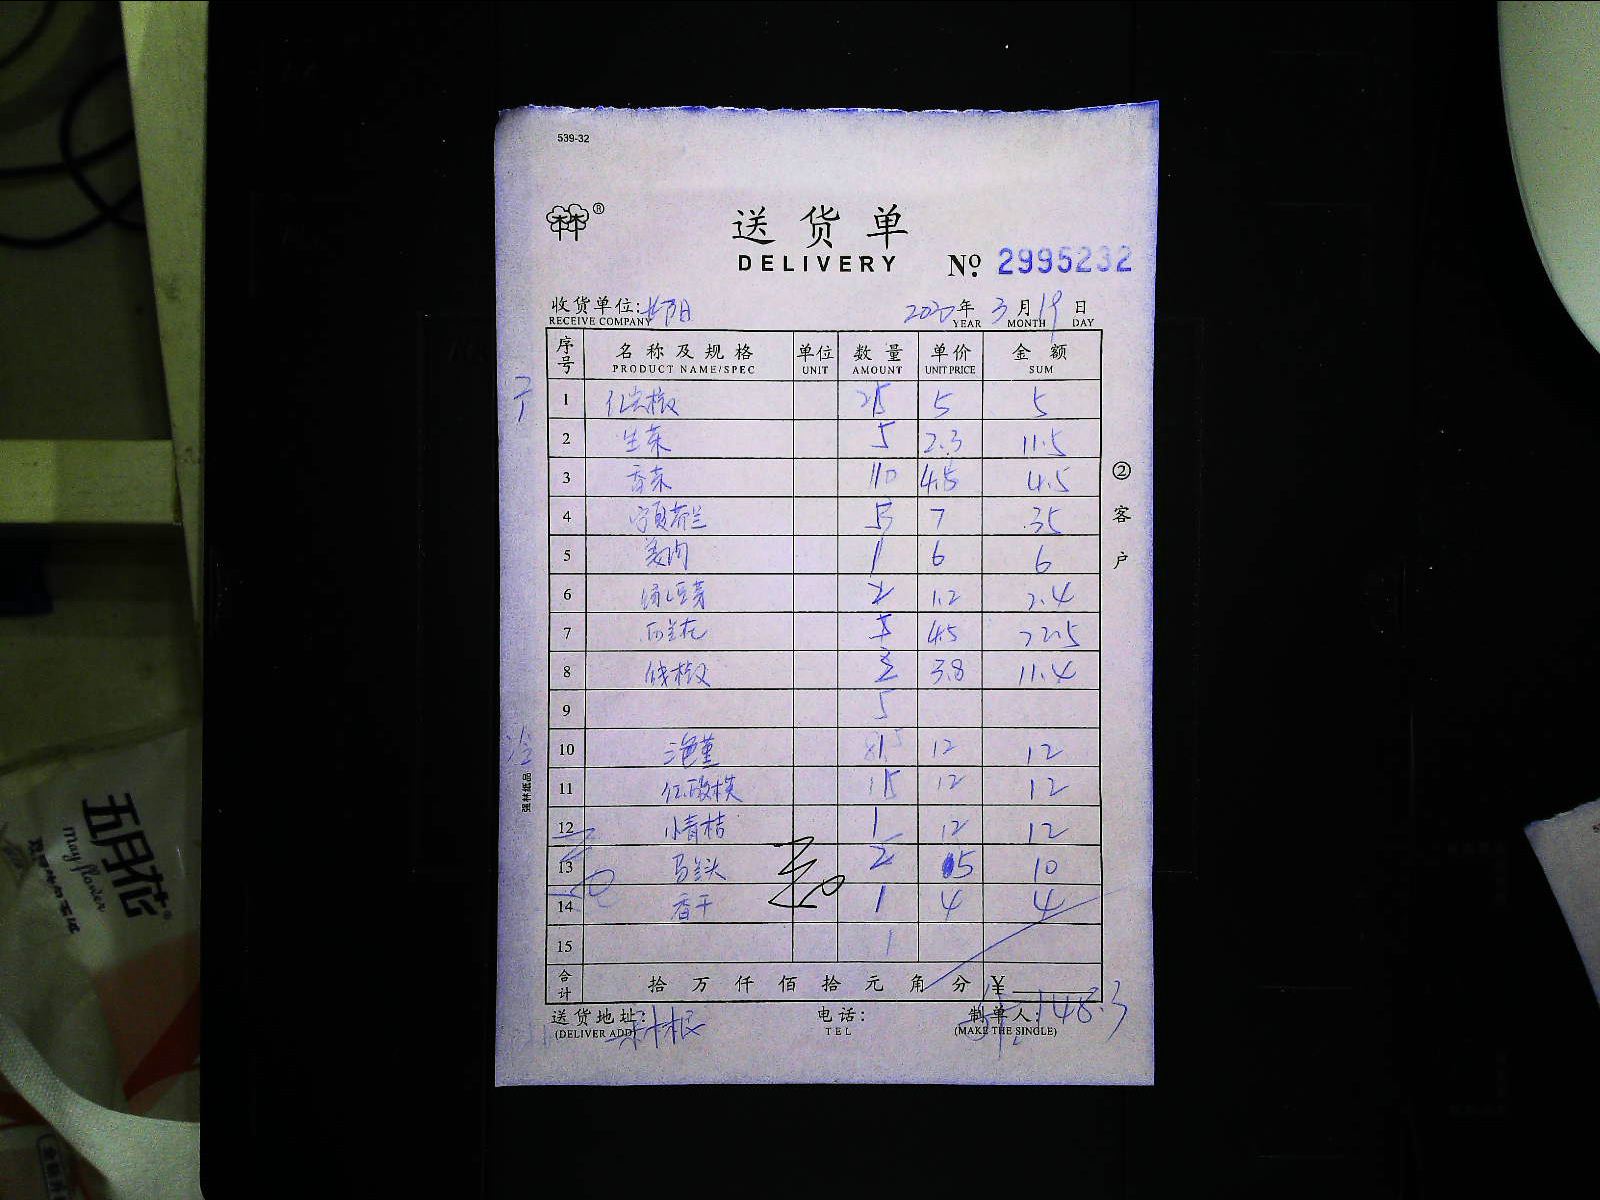 539-32
®
送货单
DELIVERY
№ 2995232
收货单位:
RECEIVE COMPANY
2020年 3月 19日
YEAR MONTH DAY
序号 名称及规格 单位 数量 单价 金额
PRODUCT NAME/SPEC UNIT AMOUNT UNIT PRICE SUM
1 5 5
2 生菜 5 2.3 11.5
3 香菜 10 4.5 4.5
4 5 7 35
5 1 6 6
6 绿豆芽 2 1.2 2.4
7 西兰花 5 4.5 22.5
8 线椒 3.8 11.4
9 5
10 三色堇 12 12
11 12 12
12 小青桔 1 12 12
13 马兰头 2 5 10
14 香干 1 4 4
15 1
合计 拾 万 仟 佰 拾 元 角 分 ¥ 148.3
送货地址: 电话: 制单人:
(DELIVER ADD) TEL (MAKE THE SINGLE)
②客户
强林纸品
五月花
May flower
®